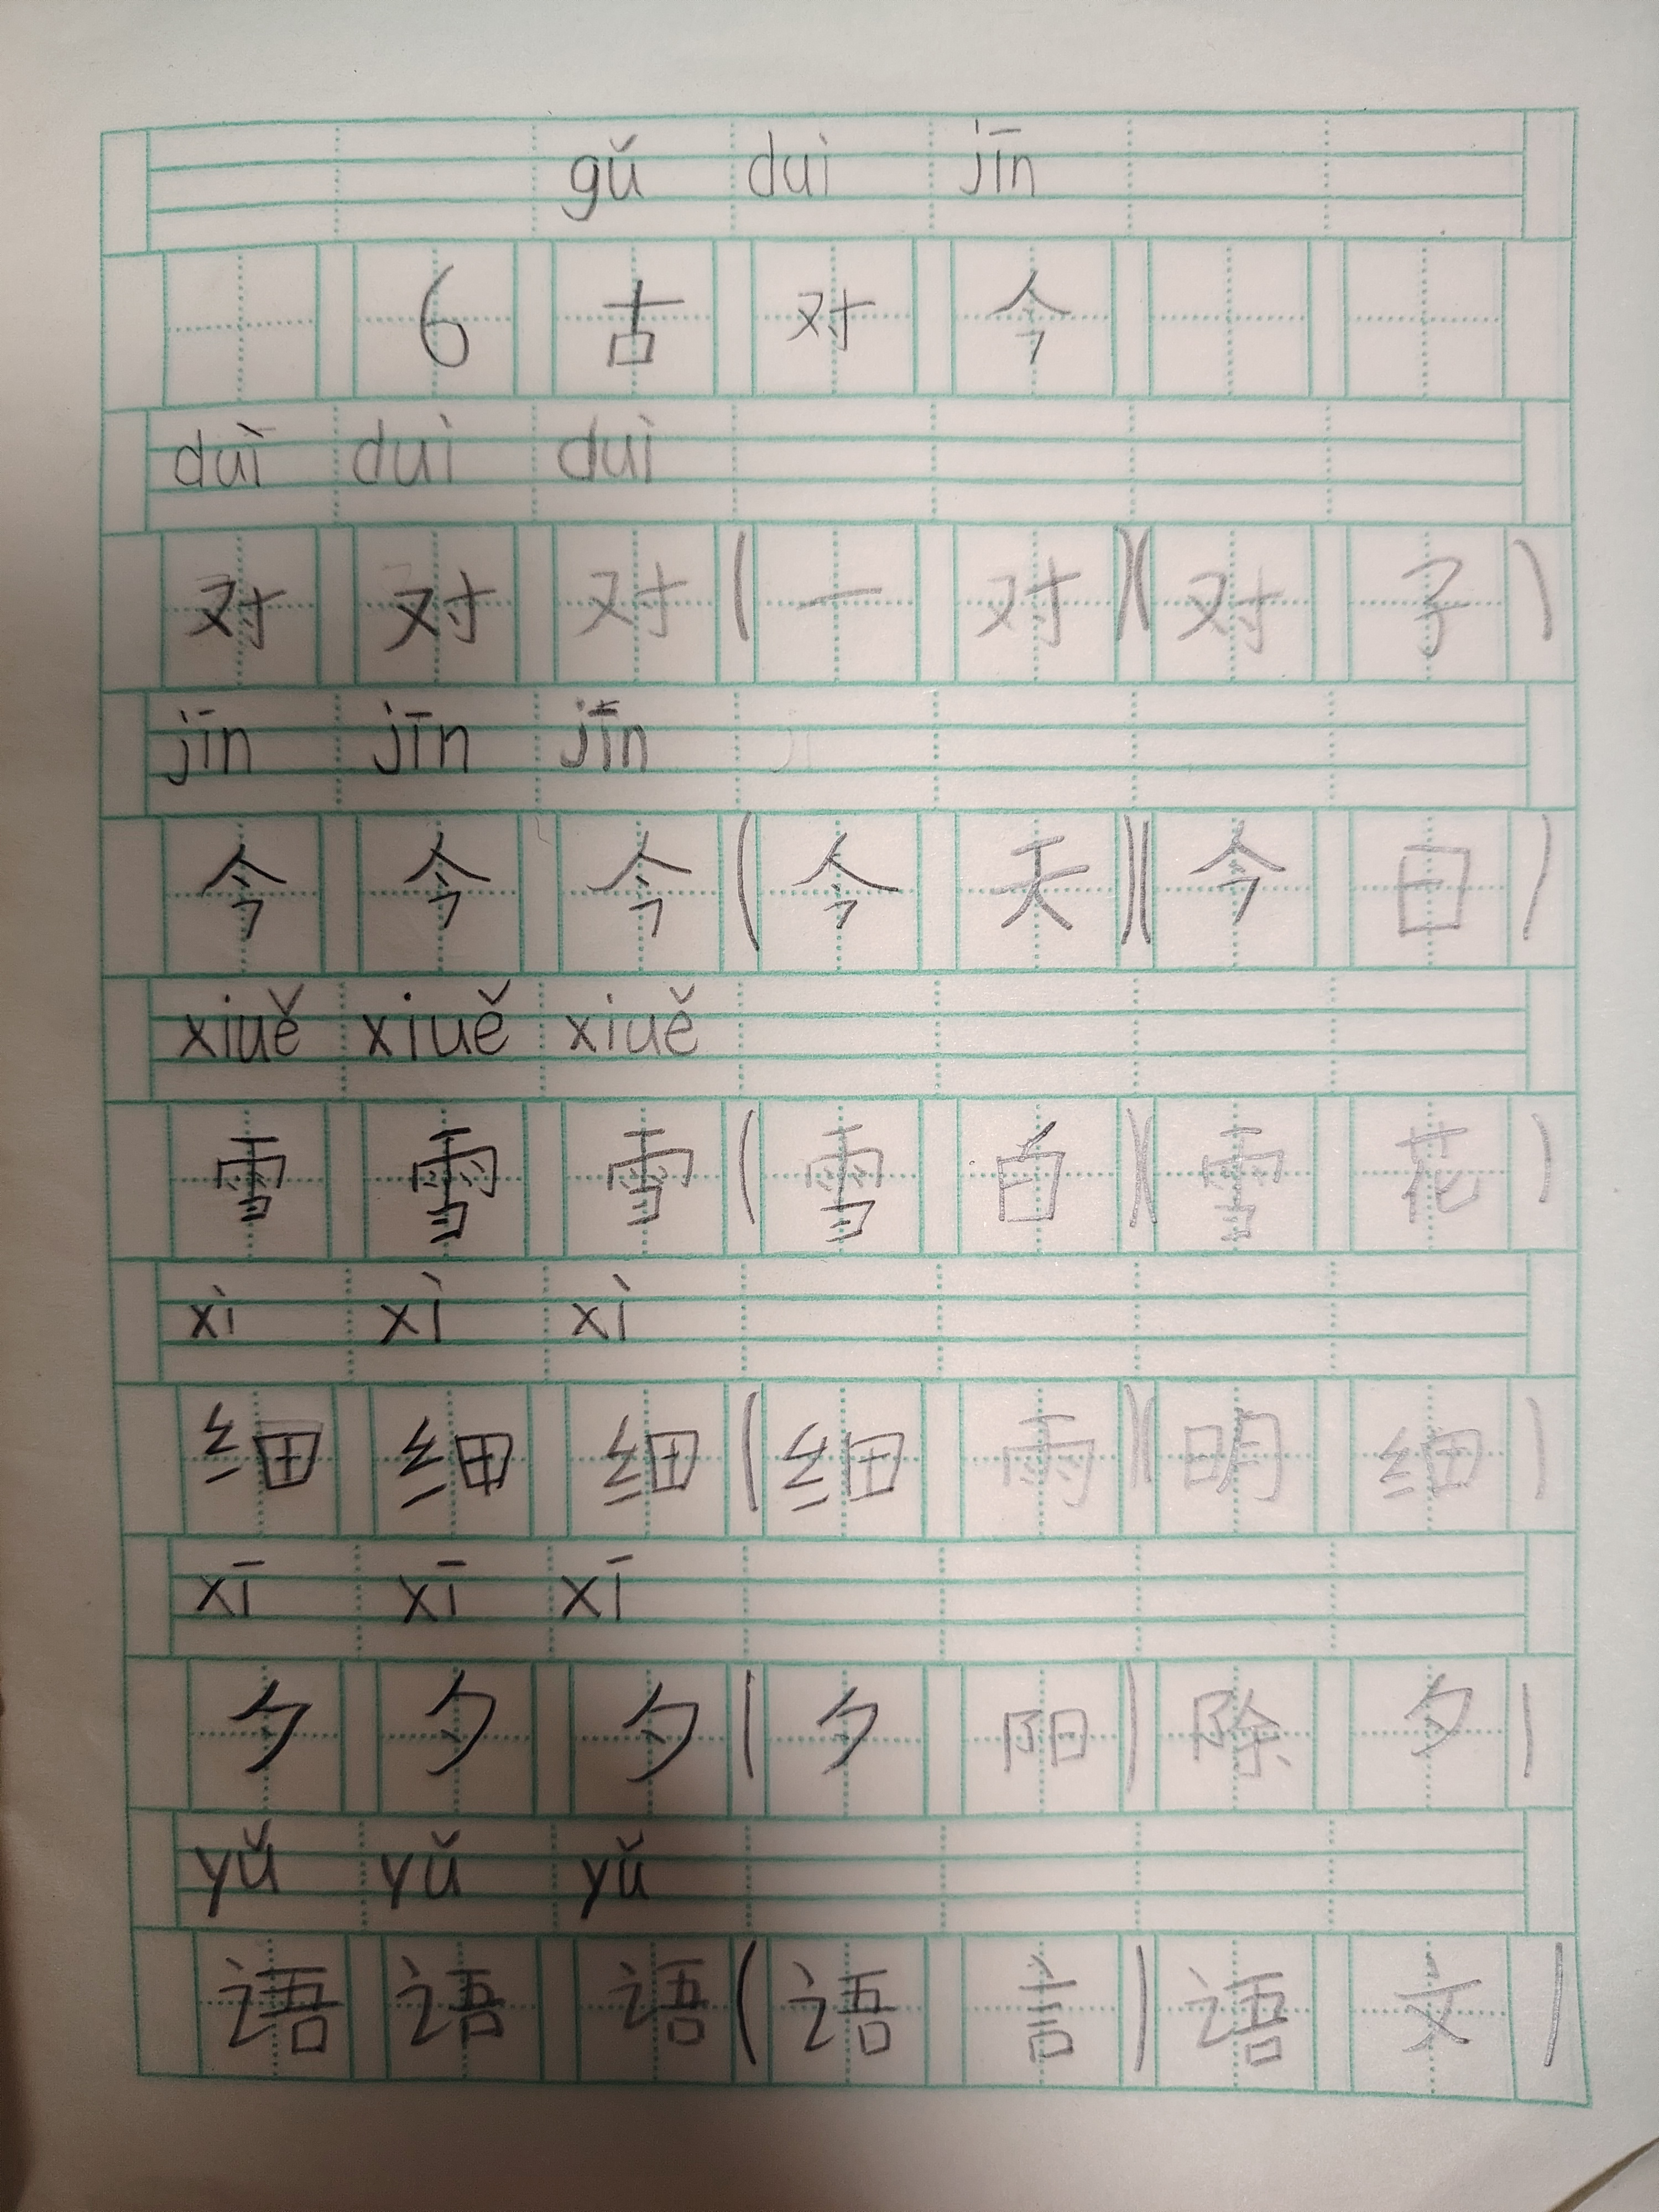 gǔ dui jīn
6 古 对 今
duì duì duì
对 对 对 (一 对)(对 子)
jīn jīn jīn
今 今 今 (今 天)(今 日)
xiuě xiuě xiuě
雪 雪 雪 (雪 白)(雪 花)
xì xì xì
细 细 细 (细 雨)(明 细)
xī xī xī
夕 夕 夕 (夕 阳) 除 夕)
yǔ yǔ yǔ
语 语 语 (语 言) 语 文)